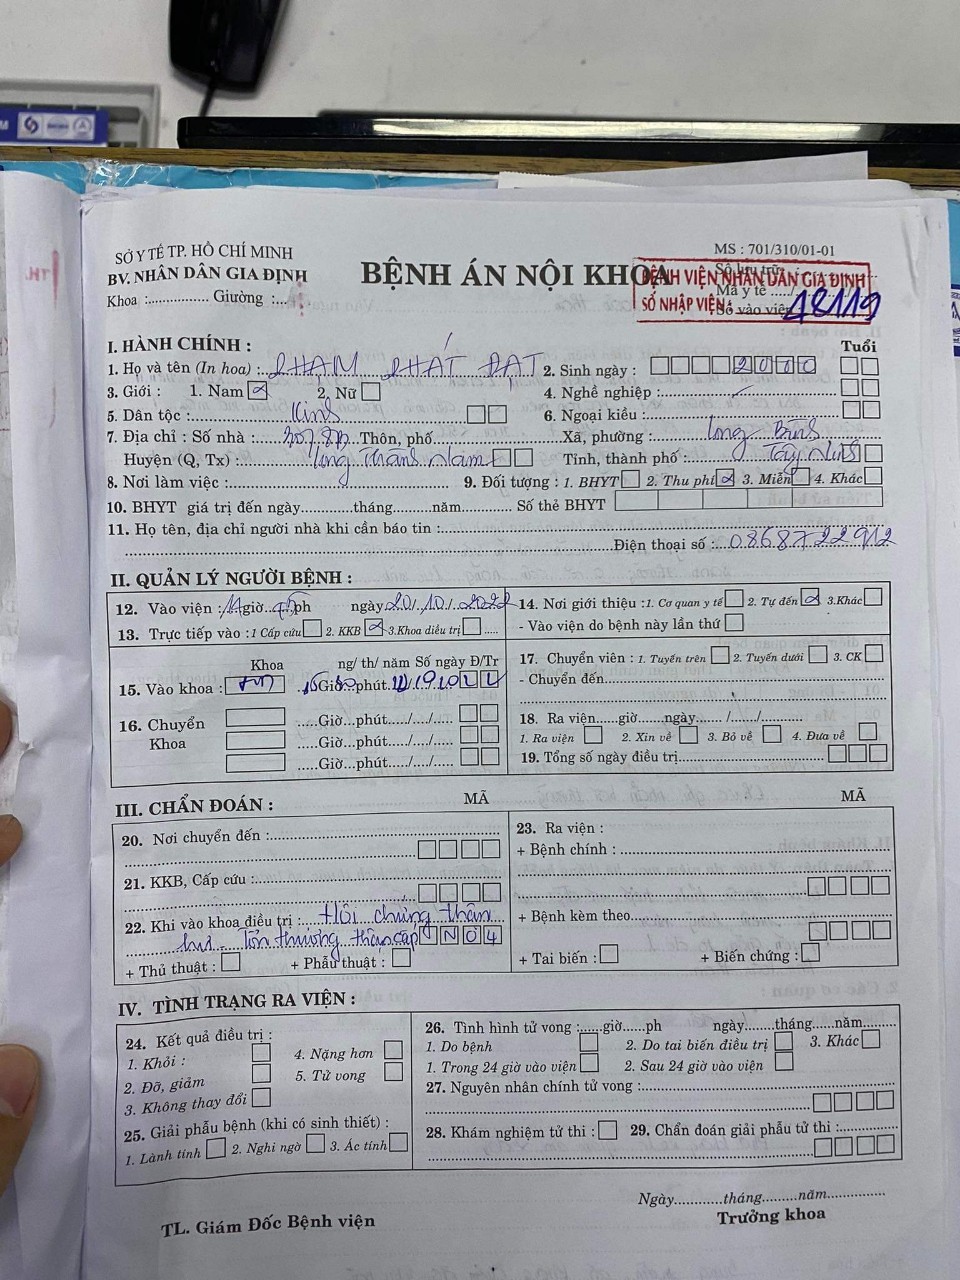 SỞ Y TẾ TP. HỒ CHÍ MINH
BV. NHÂN DÂN GIA ĐỊNH
Khoa :............... Giường :....
BỆNH ÁN NỘI KHOA
MS : 701/310/01-01
Số lưu trữ
Mã y tế ...../
Số vào viện
BỆNH VIỆN NHÂN DÂN GIA ĐỊNH
SỐ NHẬP VIỆN: 48119
I. HÀNH CHÍNH :
Tuổi
1. Họ và tên (In hoa) : PHẠM PHÁT ĐẠT 2. Sinh ngày : 2000
3. Giới : 1. Nam 2. Nữ 4. Nghề nghiệp :
5. Dân tộc : Kinh 6. Ngoại kiều :
7. Địa chỉ : Số nhà : Thôn, phố Xã, phường : Long
Huyện (Q, Tx) : Long Thành Nam Tỉnh, thành phố : Tây Ninh
8. Nơi làm việc : 9. Đối tượng : 1. BHYT 2. Thu phí 3. Miễn 4. Khác
10. BHYT giá trị đến ngày............tháng..........năm........... Số thẻ BHYT
11. Họ tên, địa chỉ người nhà khi cần báo tin :
Điện thoại số : 0868722912
II. QUẢN LÝ NGƯỜI BỆNH :
12. Vào viện : giờ ph ngày 20/10/2022 14. Nơi giới thiệu : 1. Cơ quan y tế 2. Tự đến 3.Khác
13. Trực tiếp vào : 1 Cấp cứu 2. KKB 3.Khoa điều trị ..... - Vào viện do bệnh này lần thứ
Khoa ng/ th/ năm Số ngày Đ/Tr
15. Vào khoa : Giờ...phút
16. Chuyển .....Giờ...phút...../..../....
Khoa .....Giờ...phút...../..../....
.....Giờ...phút...../..../....
17. Chuyển viên : 1. Tuyến trên 2. Tuyến dưới 3. CK
- Chuyển đến
18. Ra viện......giờ.......ngày....... /....../..........
1. Ra viện 2. Xin về 3. Bỏ về 4. Đưa về
19. Tổng số ngày điều trị
III. CHẨN ĐOÁN : MÃ MÃ
20. Nơi chuyển đến :
21. KKB, Cấp cứu :
22. Khi vào khoa điều trị : Hội chứng thận
hư - Tổn thương thận cấp N04
+ Thủ thuật : + Phẫu thuật :
23. Ra viện :
+ Bệnh chính :
+ Bệnh kèm theo
+ Tai biến : + Biến chứng :
IV. TÌNH TRẠNG RA VIỆN :
24. Kết quả điều trị :
1. Khỏi : 4. Nặng hơn
2. Đỡ, giảm 5. Tử vong
3. Không thay đổi
25. Giải phẫu bệnh (khi có sinh thiết) :
1. Lành tính 2. Nghi ngờ 3. Ác tính
26. Tình hình tử vong :......giờ......ph ngày........tháng......năm
1. Do bệnh 2. Do tai biến điều trị 3. Khác
1. Trong 24 giờ vào viện 2. Sau 24 giờ vào viện
27. Nguyên nhân chính tử vong :
28. Khám nghiệm tử thi : 29. Chẩn đoán giải phẫu tử thi :
Ngày............tháng.........năm
TL. Giám Đốc Bệnh viện Trưởng khoa